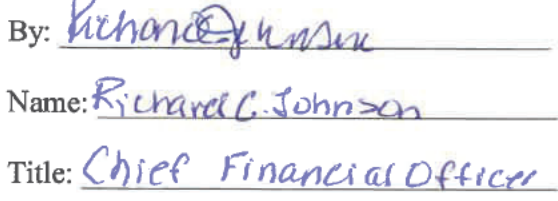 By: Richard C Johnson
Name: Richard C. Johnson
Title: Chief Financial Officer